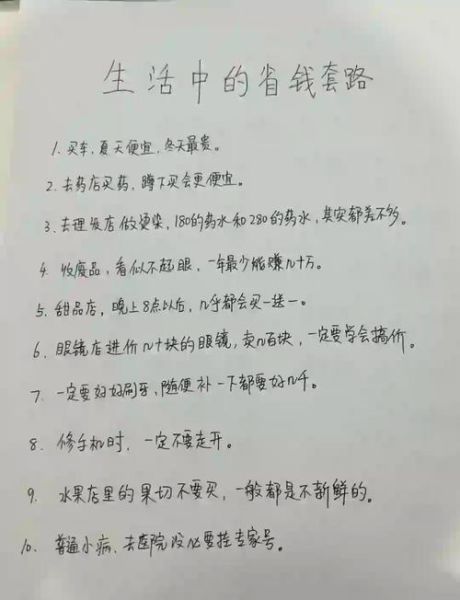 生活中的省钱套路
1. 买车，夏天便宜，冬天最贵。
2. 去药店买药，蹲下买会更便宜。
3. 去理发店做烫染，180的药水和280的药水，其实都差不多。
4. 收废品，看似不起眼，一年最少能赚几十万。
5. 甜品店，晚上8点以后，几乎都会买一送一。
6. 眼镜店进价几十块的眼镜，卖几百块，一定要学会搞价。
7. 一定要好好刷牙，随便补一下都要好几千。
8. 修手机时，一定不要走开。
9. 水果店里的果切不要买，一般都是不新鲜的。
10. 普通小病、去医院没必要挂专家号。